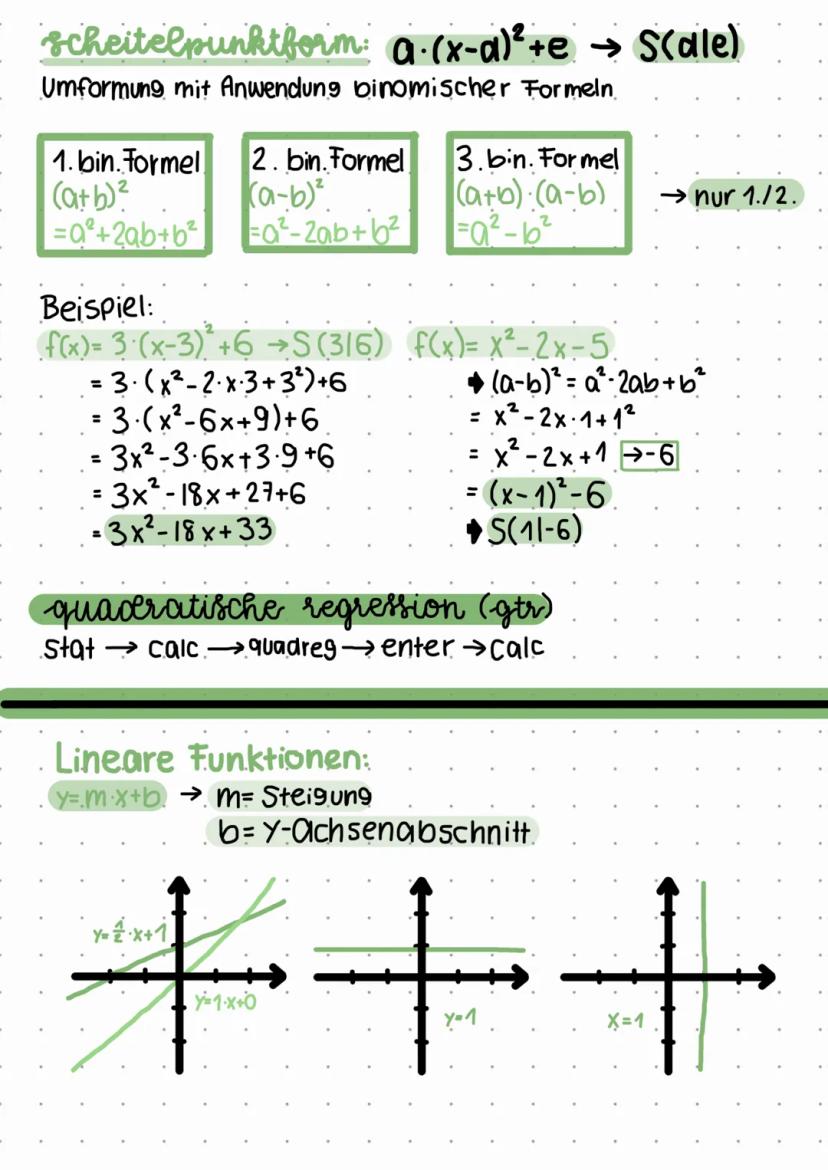 scheitelpunktform: a·(x-d)²+e → S(d|e)
Umformung mit Anwendung binomischer Formeln
1. bin. Formel
(a+b)²
=a²+2ab+b²
2. bin. Formel
(a-b)²
=a²-2ab+b²
3. bin. Formel
(a+b)·(a-b)
=a²-b²
→ nur 1./2.
Beispiel:
f(x)= 3·(x-3)²+6 → S(3|6)
= 3·(x²-2·x·3+3²)+6
= 3·(x²-6x+9)+6
= 3x²-3·6x+3·9+6
= 3x²-18x+27+6
= 3x²-18x+33
f(x)= x²-2x-5
➧ (a-b)² = a²-2ab+b²
= x²-2x·1+1²
= x²-2x+1 →-6
= (x-1)²-6
➧ S(1|-6)
quadratische regression (gtr)
stat → calc → quadreg → enter → calc
Lineare Funktionen:
y=m·x+b → m= Steigung
b= y-Achsenabschnitt
y=½·x+1
y=1·x+0
y=1
x=1